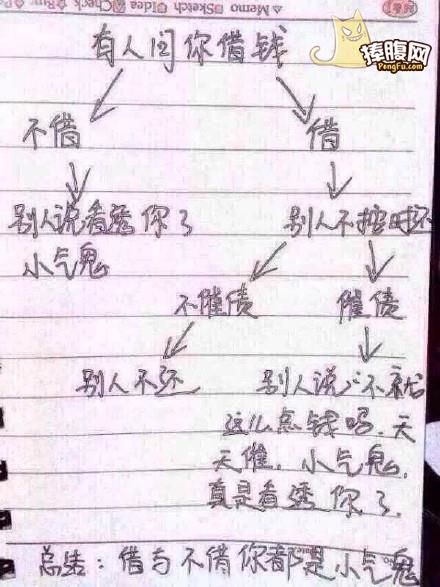 Memo Sketch Idea Check Buy
捧腹网
PengFu.com
有人问你借钱
不借 借
别人说看透你了 别人不按时还
小气鬼
不催债 催债
别人不还 别人说:不就
这么点钱吗,天
天催,小气鬼,
真是看透你了.
总结:借与不借你都是小气鬼